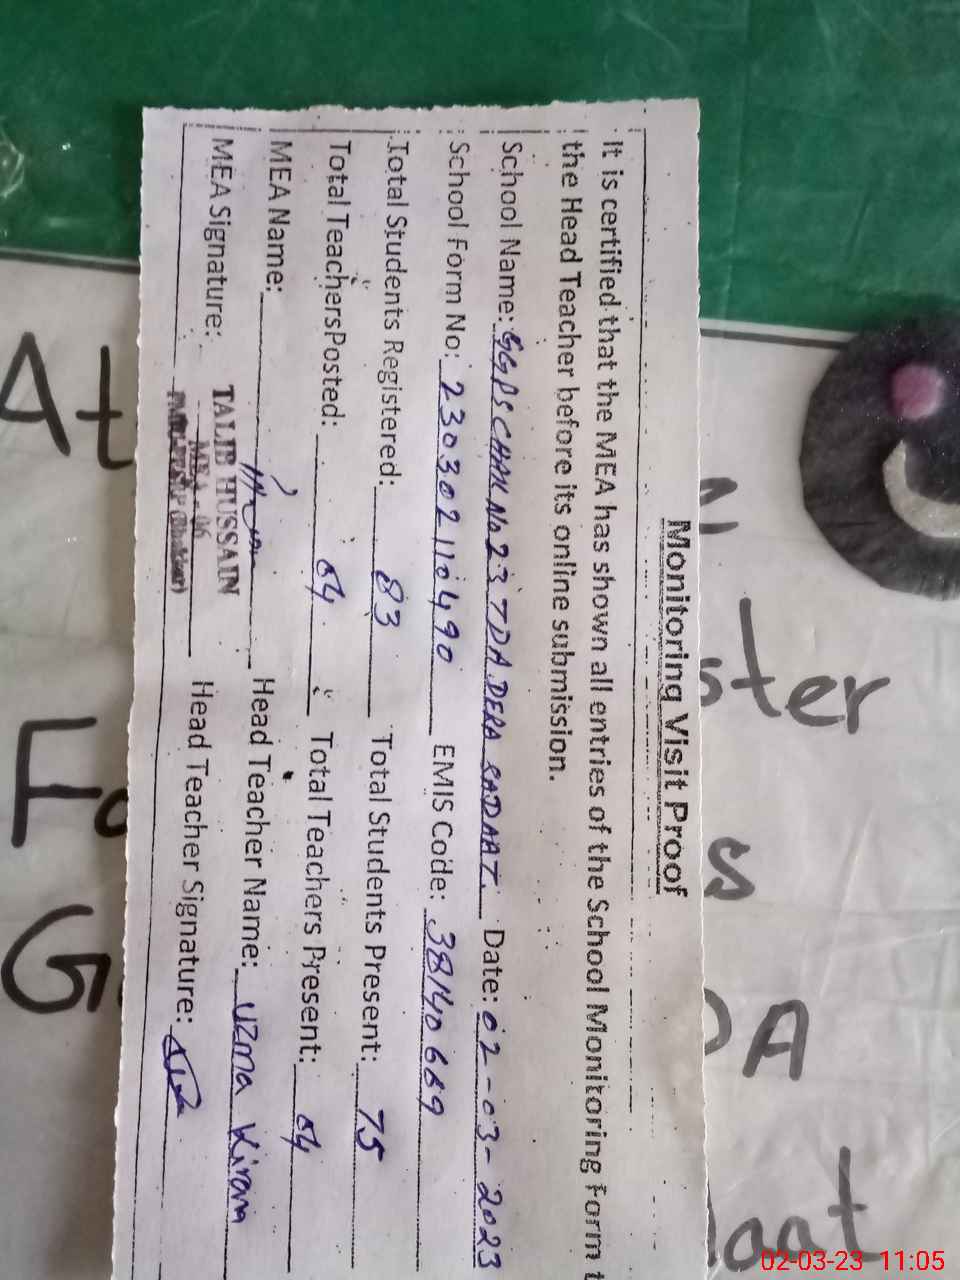 Monitoring Visit Proof
It is certified that the MEA has shown all entries of the School Monitoring Form t
the Head Teacher before its online submission.
School Name: GGPS CHAK No 23 TDA DERA SADAAT. Date: 02-03-2023
School Form No: 230302110490 EMIS Code: 38140669
Total Students Registered: 83 Total Students Present: 75
Total Teachers Posted: 04 Total Teachers Present: 04
MEA Name: Head Teacher Name: Uzma Kiran
MEA Signature: TALIB HUSSAIN Head Teacher Signature:
MEA - 06
At
ster
Fo
s
G
DA
aat
02-03-23 11:05